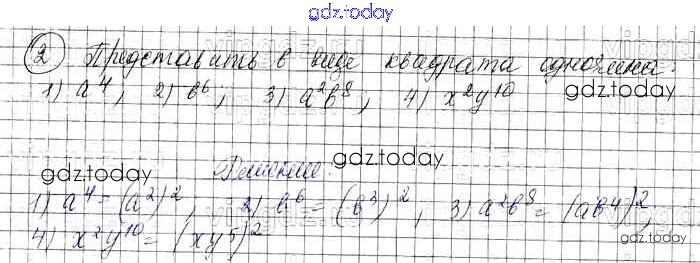 gdz.today
2 Представить в виде квадрата одночлена
1) a⁴, 2) b⁶; 3) a²b⁸; 4) x²y¹⁰
gdz.today
gdz.today
gdz.today Решение:
1) a⁴ = (a²)², 2) b⁶ = (b³)², 3) a²b⁸ = (ab⁴)²,
4) x²y¹⁰ = (xy⁵)²
gdz.today